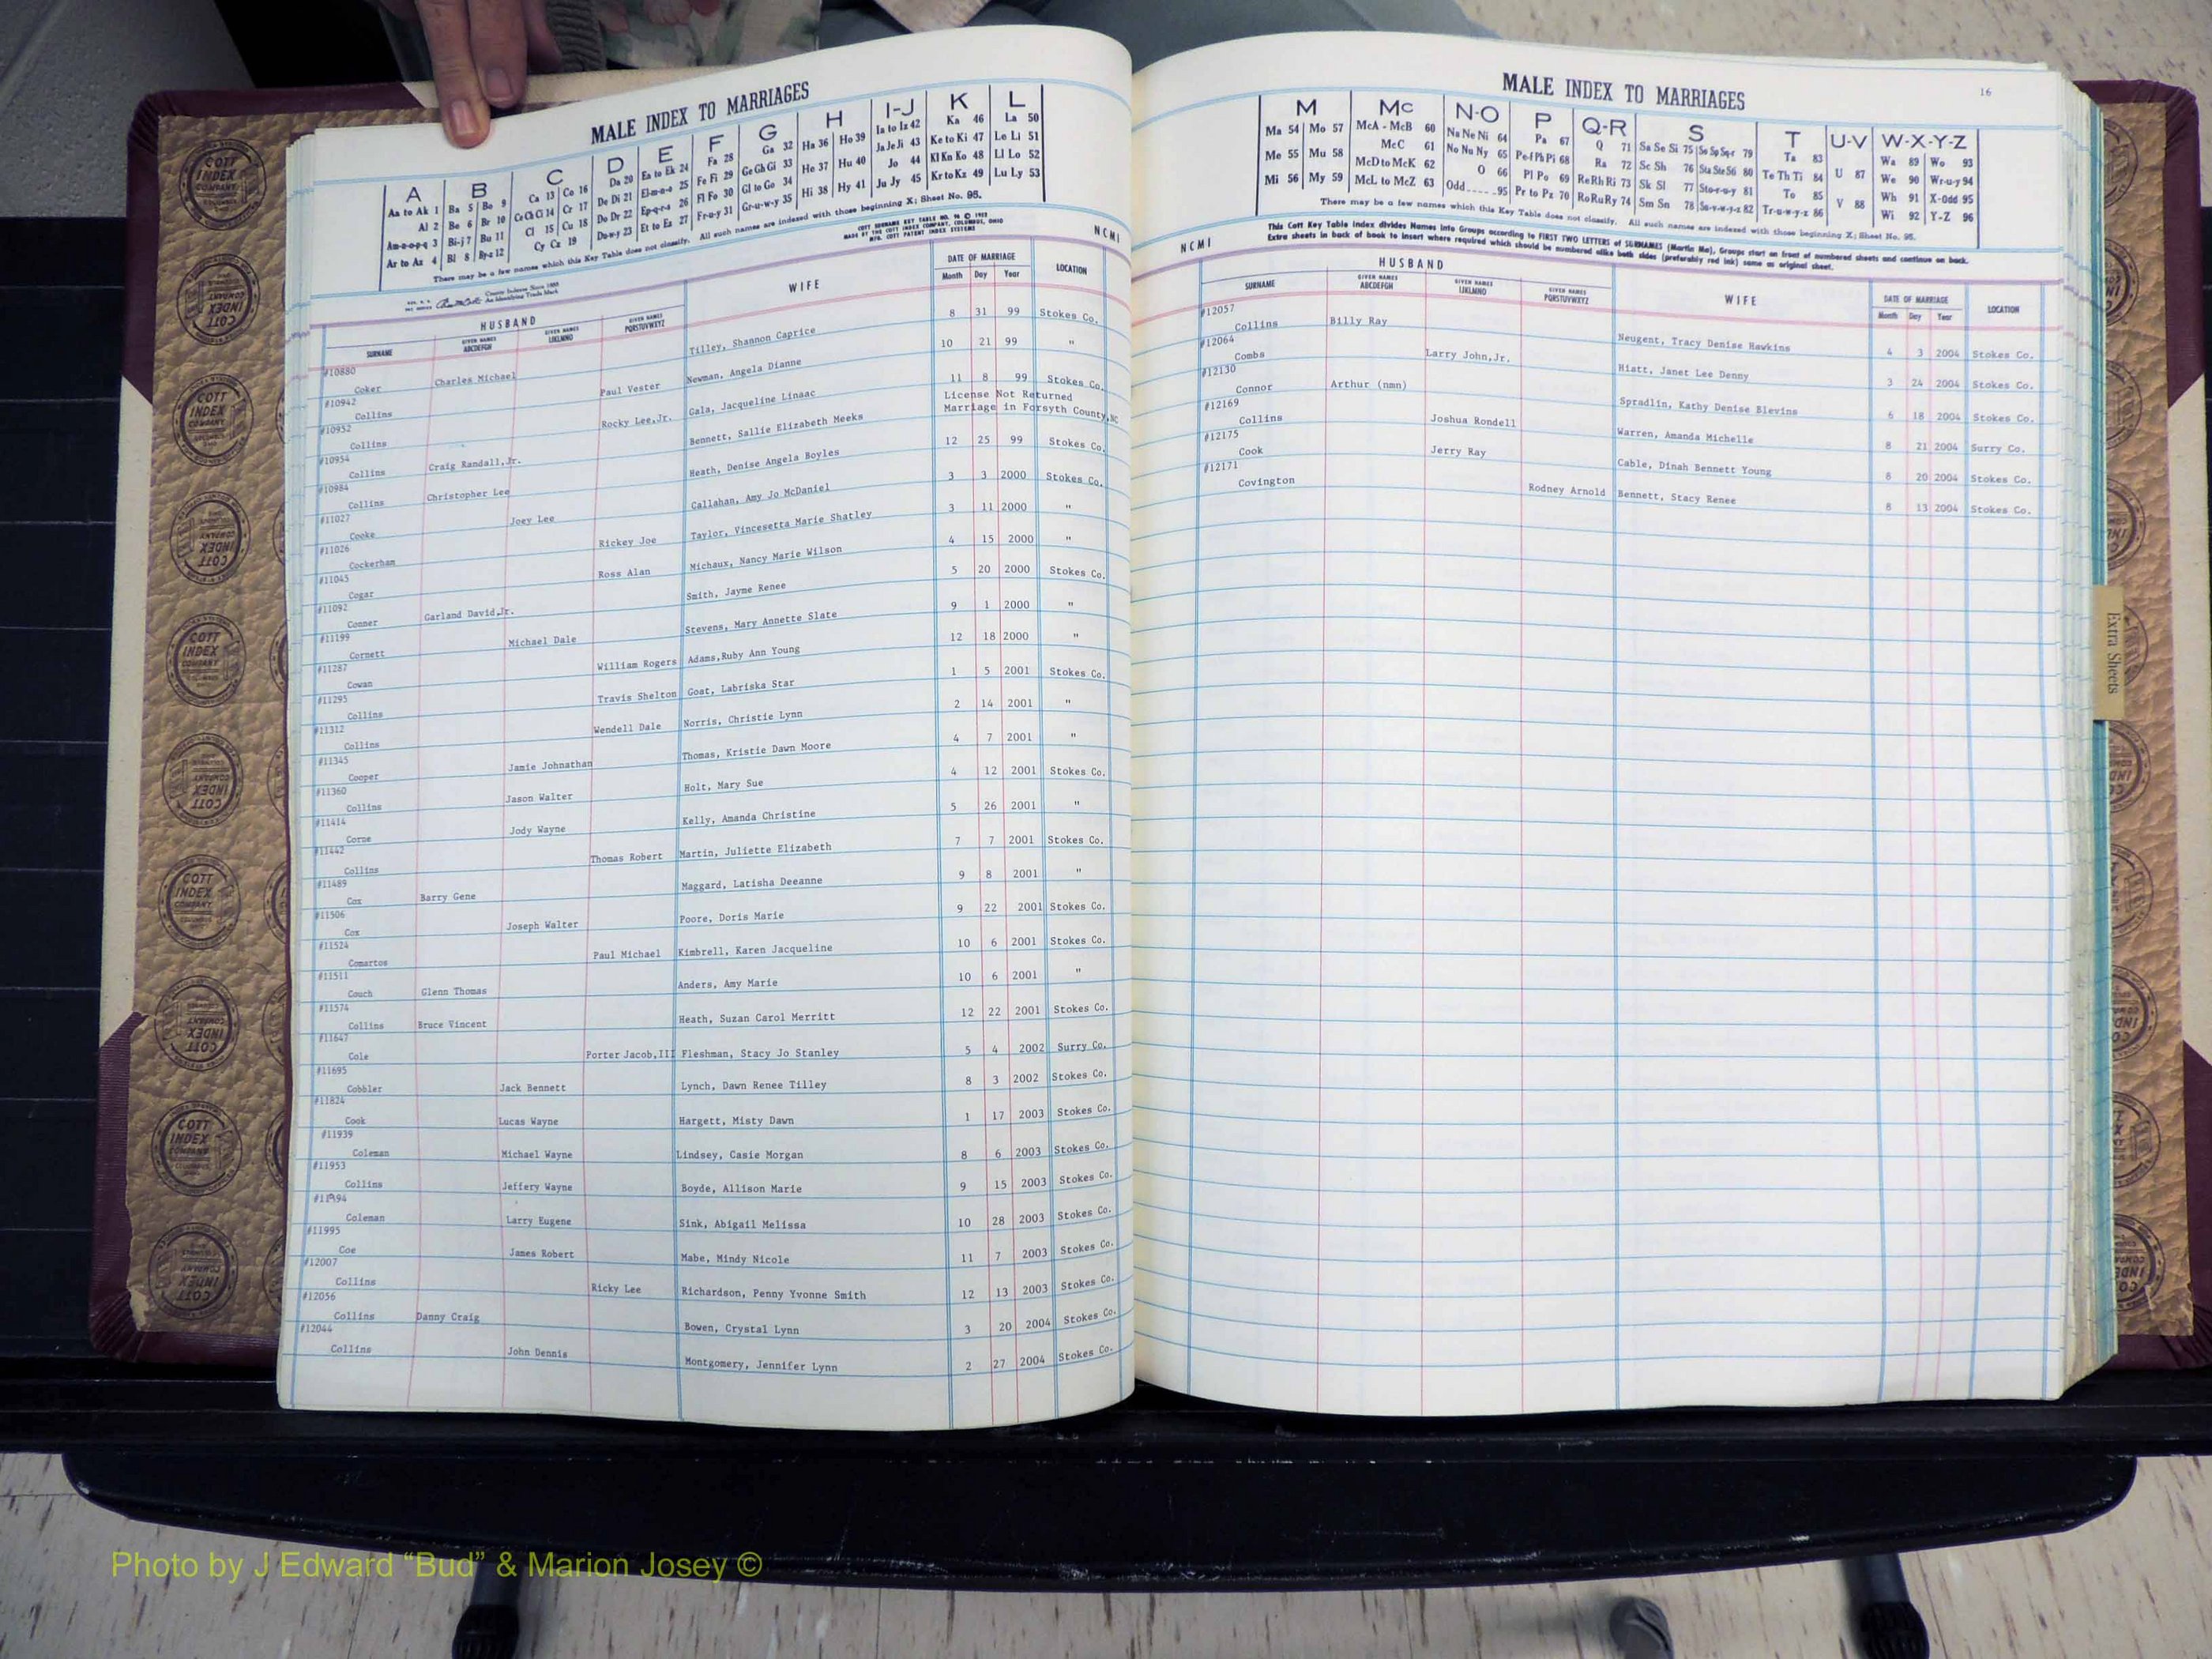 MALE INDEX TO MARRIAGES
A B C D E F G H I-J K L
Aa to Ak 1 Ba 5 Bo 9 Ca 13 Co 16 Da 20 Ea to Ek 24 Fa 28 Ga 32 Ha 36 Ho 39 Ia to Iz 42 Ka 46 La 50
Al 2 Be 6 Br 10 Ce Ch Ci 14 Cr 17 De Di 21 El-m-n-o 25 Fe Fi 29 Ge Gh Gi 33 He 37 Hu 40 Ja Je Ji 43 Ke to Ki 47 Le Li 51
Am-n-o-p-q 3 Bi-j 7 Bu 11 Cl 15 Cu 18 Do Dr 22 Ep-q-r-s 26 Fl Fo 30 Gl to Go 34 Hi 38 Hy 41 Jo 44 Kl Kn Ko 48 Ll Lo 52
Ar to Az 4 Bl 8 By-z 12 Cy Cz 19 Du-w-y 23 Et to Ez 27 Fr-u-y 31 Gr-u-w-y 35 Ju Jy 45 Kr to Kz 49 Lu Ly 53
There may be a few names which this Key Table does not classify. All such names are indexed with those beginning X; Sheet No. 95.
NCMI
HUSBAND WIFE DATE OF MARRIAGE LOCATION
SURNAME GIVEN NAMES ABCDEFGH GIVEN NAMES IJKLMNO GIVEN NAMES PQRSTUVWXYZ Month Day Year
#10880 Coker Charles Michael Tilley, Shannon Caprice 8 31 99 Stokes Co.
#10942 Collins Paul Vester Newman, Angela Dianne 10 21 99 "
#10952 Collins Rocky Lee,Jr. Gala, Jacqueline Linaac 11 8 99 Stokes Co.
#10954 Collins Craig Randall,Jr. Bennett, Sallie Elizabeth Meeks License Not Returned
Marriage in Forsyth County,NC
#10984 Collins Christopher Lee Heath, Denise Angela Boyles 12 25 99 Stokes Co.
#11027 Cooke Joey Lee Callahan, Amy Jo McDaniel 3 3 2000 Stokes Co.
#11026 Cockerham Rickey Joe Taylor, Vincesetta Marie Shatley 3 11 2000 "
#11045 Cogar Ross Alan Michaux, Nancy Marie Wilson 4 15 2000 "
#11092 Conner Garland David,Jr. Smith, Jayme Renee 5 20 2000 Stokes Co.
#11199 Cornett Michael Dale Stevens, Mary Annette Slate 9 1 2000 "
#11287 Cowan William Rogers Adams,Ruby Ann Young 12 18 2000 "
#11295 Collins Travis Shelton Goat, Labriska Star 1 5 2001 Stokes Co.
#11312 Collins Wendell Dale Norris, Christie Lynn 2 14 2001 "
#11345 Cooper Jamie Johnathan Thomas, Kristie Dawn Moore 4 7 2001 "
#11360 Collins Jason Walter Holt, Mary Sue 4 12 2001 Stokes Co.
#11414 Corne Jody Wayne Kelly, Amanda Christine 5 26 2001 "
#11442 Collins Thomas Robert Martin, Juliette Elizabeth 7 7 2001 Stokes Co.
#11489 Cox Barry Gene Maggard, Latisha Deeanne 9 8 2001 "
#11506 Cox Joseph Walter Poore, Doris Marie 9 22 2001 Stokes Co.
#11524 Comartos Paul Michael Kimbrell, Karen Jacqueline 10 6 2001 Stokes Co.
#11511 Couch Glenn Thomas Anders, Amy Marie 10 6 2001 "
#11574 Collins Bruce Vincent Heath, Suzan Carol Merritt 12 22 2001 Stokes Co.
#11647 Cole Porter Jacob,III Fleshman, Stacy Jo Stanley 5 4 2002 Surry Co.
#11695 Cobbler Jack Bennett Lynch, Dawn Renee Tilley 8 3 2002 Stokes Co.
#11824 Cook Lucas Wayne Hargett, Misty Dawn 1 17 2003 Stokes Co.
#11939 Coleman Michael Wayne Lindsey, Casie Morgan 8 6 2003 Stokes Co.
#11953 Collins Jeffery Wayne Boyde, Allison Marie 9 15 2003 Stokes Co.
#11994 Coleman Larry Eugene Sink, Abigail Melissa 10 28 2003 Stokes Co.
#11995 Coe James Robert Mabe, Mindy Nicole 11 7 2003 Stokes Co.
#12007 Collins Ricky Lee Richardson, Penny Yvonne Smith 12 13 2003 Stokes Co.
#12056 Collins Danny Craig Bowen, Crystal Lynn 3 20 2004 Stokes Co.
#12044 Collins John Dennis Montgomery, Jennifer Lynn 2 27 2004 Stokes Co.
MALE INDEX TO MARRIAGES 16
M Mc N-O P Q-R S T U-V W-X-Y-Z
Ma 54 Mo 57 McA - McB 60 Na Ne Ni 64 Pa 67 Q 71 Sa Se Si 75 So Sp Sq-r 79 Ta 83 U 87 Wa 89 Wo 93
Me 55 Mu 58 McC 61 No Nu Ny 65 Pe-f Ph Pi 68 Ra 72 Sc Sh 76 Sta Ste Sti 80 Te Th Ti 84 V 88 We 90 Wr-u-y 94
Mi 56 My 59 McD to McK 62 O 66 Pl Po 69 Re Rh Ri 73 Sk Sl 77 Sto-r-u-y 81 To 85 Wh 91 X-Odd 95
McL to McZ 63 Odd 95 Pr to Pz 70 Ro Ru Ry 74 Sm Sn 78 Su-v-w-y-z 82 Tr-u-w-y-z 86 Wi 92 Y-Z 96
There may be a few names which this Key Table does not classify. All such names are indexed with those beginning X; Sheet No. 95.
This Cott Key Table Index divides Names into Groups according to FIRST TWO LETTERS of SURNAMES (Martin Ma), Groups start on front of numbered sheets and continue on back.
Extra sheets in back of book to insert where required which should be numbered alike both sides (preferably red ink) same as original sheet.
NCMI
HUSBAND WIFE DATE OF MARRIAGE LOCATION
SURNAME GIVEN NAMES ABCDEFGH GIVEN NAMES IJKLMNO GIVEN NAMES PQRSTUVWXYZ Month Day Year
#12057 Collins Billy Ray Neugent, Tracy Denise Hawkins 4 3 2004 Stokes Co.
#12064 Combs Larry John,Jr. Hiatt, Janet Lee Denny 3 24 2004 Stokes Co.
#12130 Connor Arthur (nmn) Spradlin, Kathy Denise Blevins 6 18 2004 Stokes Co.
#12169 Collins Joshua Rondell Warren, Amanda Michelle 8 21 2004 Surry Co.
#12175 Cook Jerry Ray Cable, Dinah Bennett Young 8 20 2004 Stokes Co.
#12171 Covington Rodney Arnold Bennett, Stacy Renee 8 13 2004 Stokes Co.
Extra Sheets
COTT INDEX COMPANY
Photo by J Edward “Bud” & Marion Josey ©